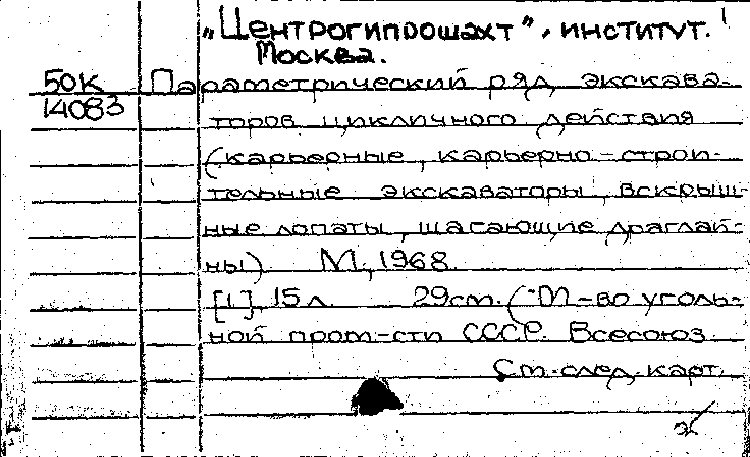 „Центрогипрошахт", институт.
Москва.
50К Параметрический ряд экскава-
14083 торов цикличного действия
(карьерные, карьерно-строи-
тельные экскаваторы, вскрыш-
ные лопаты, шагающие драглай-
ны). М., 1968.
[1], 15 л. 29 см. (М-во уголь-
ной пром-сти СССР. Всесоюз.
См. след. карт.